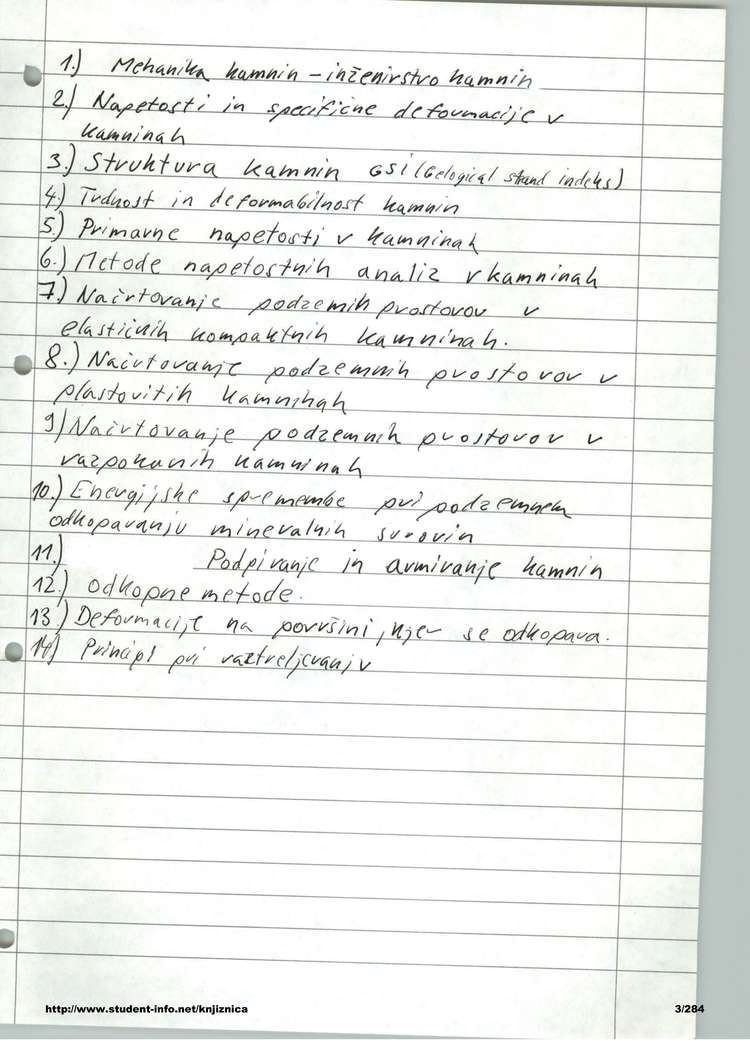 1.) Mehanika kamnin – inženirstvo kamnin
2.) Napetosti in specifične deformacije v
kamninah
3.) Struktura kamnin GSI (Gelogical indeks)
4.) Trdnost in deformabilnost kamnin
5.) Primarne napetosti v kamninah
6.) Metode napetostnih analiz v kamninah
7.) Načrtovanje podzemih prostorov v
elastičnih kompaktnih kamninah.
8.) Načrtovanje podzemnih prostorov v
plastovitih kamninah
9) Načrtovanje podzemnih prostorov v
razpokanih kamninah
10.) Energijske spremembe pri podzemnem
odkopavanju mineralnih surovin
11.) Podpiranje in armiranje kamnin
12.) Odkopne metode.
13.) Deformacije na površini, kjer se odkopava.
14) Principi pri raztreljevanju
http://www.student-info.net/knjiznica 3/284